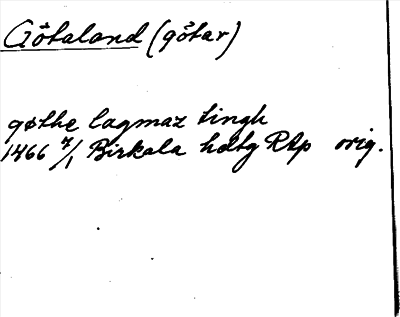 Götaland (götar)
gøthe lagmaz tingh
1466 7/1 Birkala hdtg Rtp orig.